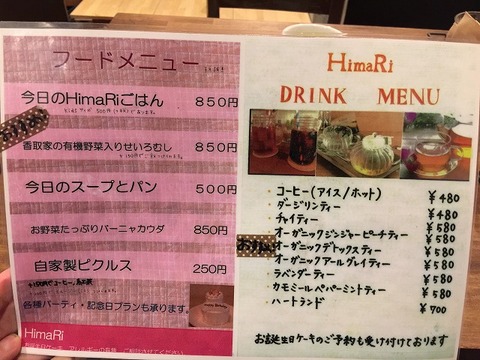 フードメニュー
今日のHimaRiごはん 850円
香取家の有機野菜入りせいろむし 850円
今日のスープとパン 500円
お野菜たっぷりバーニャカウダ 850円
自家製ピクルス 250円
各種パーティ・記念日プランも承ります。
HimaRi
HimaRi
DRINK MENU
・コーヒー(アイス/ホット) ¥480
・ダージリンティー
・チャイティー ¥480
・オーガニックジンジャーピーチティー ¥580
おすすめ オーガニックデトックスティー ¥580
・オーガニックアールグレイティー ¥580
・ラベンダーティー ¥580
・カモミールペパーミントティー ¥580
・ハートランド ¥700
お誕生日ケーキのご予約も受け付けております